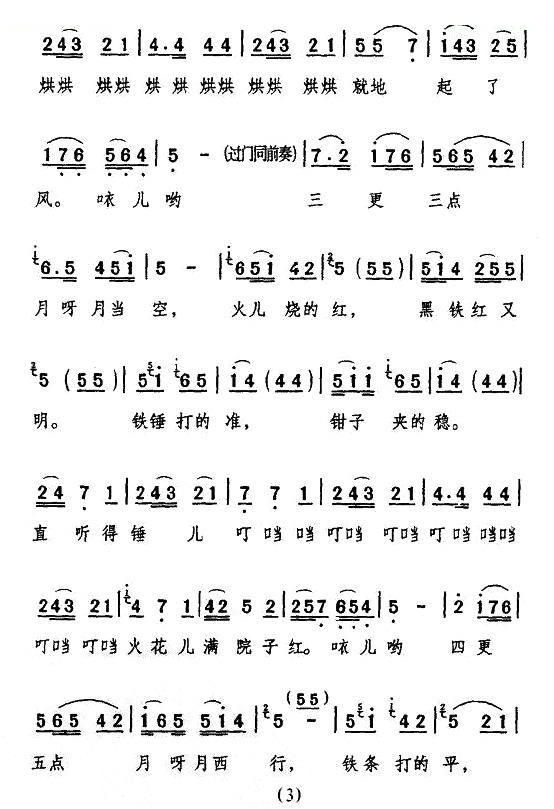 2 4 3 2 1 | 4. 4 4 4 | 2 4 3 2 1 | 5 5 7 | 1 4 3 2 5 |
烘烘 烘烘 烘 烘 烘烘 烘烘 烘烘 就地 起 了
1 7 6 5 6 4 | 5 - (过门同前奏) | 7. 2 1 7 6 | 5 6 5 4 2 |
风。 咴 儿 哟 三 更 三点
6. 5 4 5 1 | 5 - | 6 5 1 4 2 | 5 (5 5) | 5 1 4 2 5 5 |
月 呀 月当 空, 火儿 烧的 红, 黑 铁 红 又
5 (5 5) | 5 1 6 5 | 1 4 (4 4) | 5 1 1 6 5 | 1 4 (4 4) |
明。 铁锤 打的 准, 钳子 夹的 稳。
2 4 7 1 | 2 4 3 2 1 | 7 7 1 | 2 4 3 2 1 | 4. 4 4 4 |
直 听 得 锤 儿 叮 当 当 叮当 叮当 叮 当 当当
2 4 3 2 1 | 4 7 1 | 4 2 5 2 | 2 5 7 6 5 4 | 5 - | 2 1 7 6 |
叮当 叮当 火 花 儿 满 院 子 红。 咴 儿 哟 四 更
5 6 5 4 2 | 1 6 5 5 1 4 | 5 (5 5) - | 5 1 4 2 | 5 2 1 |
五点 月 呀 月西 行, 铁条 打的 平,
(3)